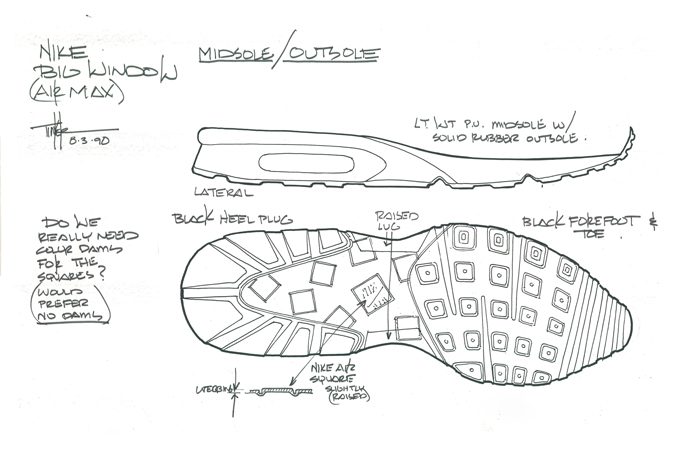 NIKE
BIG WINDOW
(AIR MAX)
MIDSOLE/OUTSOLE
8.3.90
LT WT P.U. MIDSOLE W/
SOLID RUBBER OUTSOLE.
LATERAL
DO WE
REALLY NEED
COLOR DAMS
FOR THE
SQUARES?
(WOULD
PREFER
NO DAMS)
BLACK HEEL PLUG
RAISED
LUG
BLACK FOREFOOT &
TOE.
NIKE AIR
SQUARE
SLIGHTLY
(RAISED)